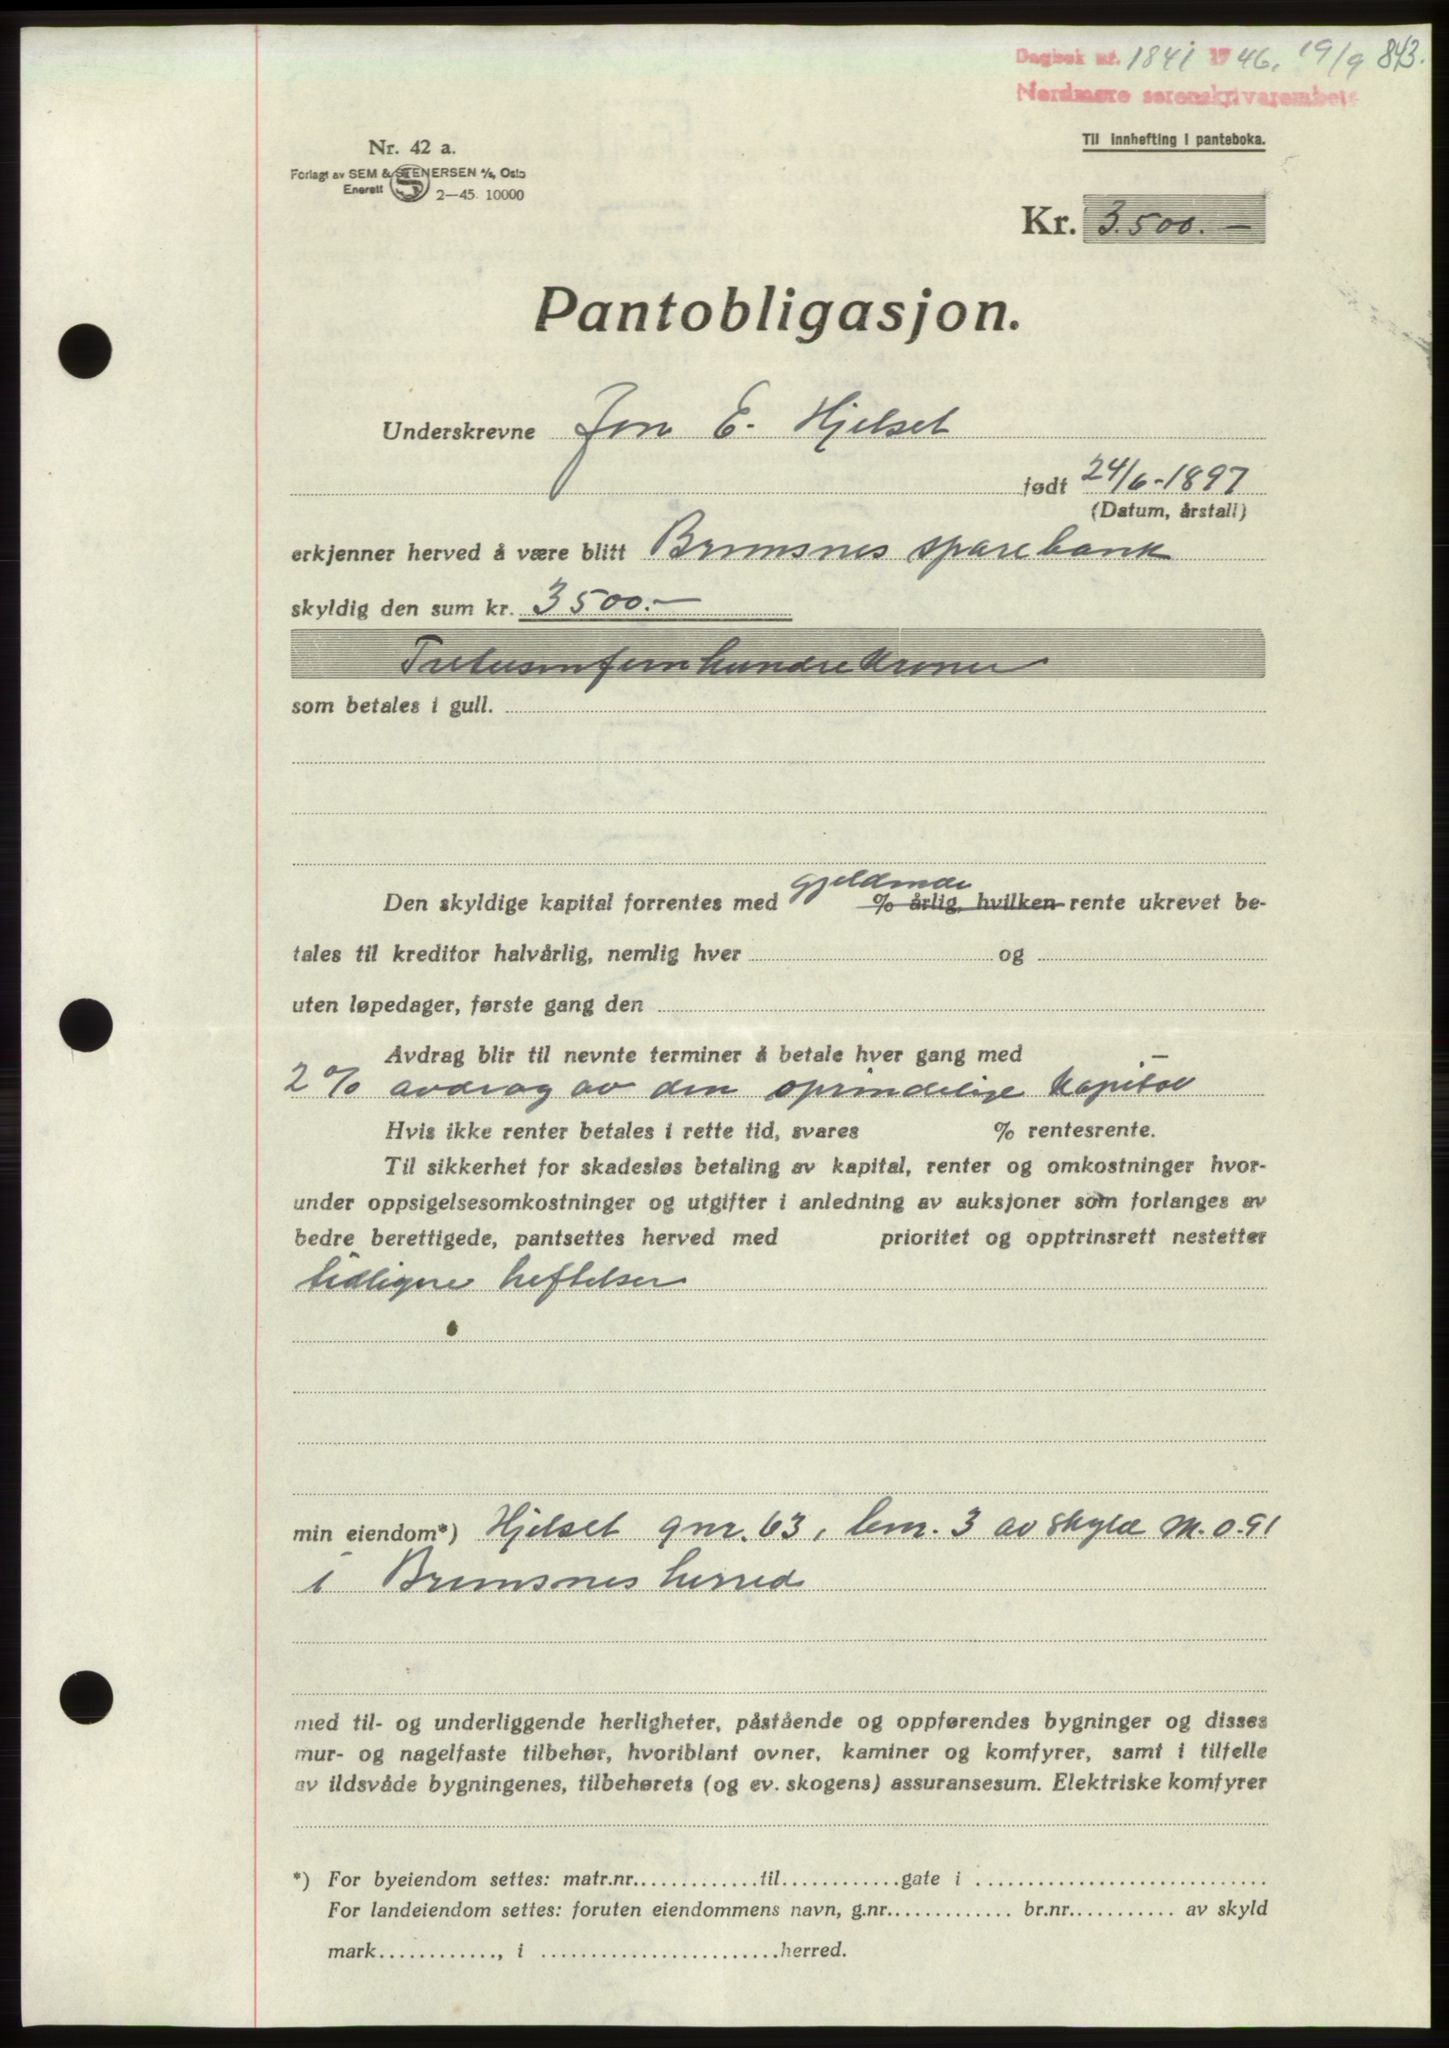 Dagbok nr. 1841 1946. 19/9 843.
Nordmøre sorenskrivarembete
Til innhefting i panteboka.
Nr. 42 a.
Forlagt av SEM & STENERSEN A/S, Oslo
Enerett 2—45. 10000
Kr. 3.500.—
Pantobligasjon.
Underskrevne Jon E. Hjelset
født 24/6-1897
(Datum, årstall)
erkjenner herved å være blitt Bremsnes sparebank
skyldig den sum kr. 3500.—
Tretusenfemhundre kroner
som betales i gull.
Den skyldige kapital forrentes med gjeldende % årlig, hvilken rente ukrevet be-
tales til kreditor halvårlig, nemlig hver og
uten løpedager, første gang den
Avdrag blir til nevnte terminer å betale hver gang med —
2% avdrag av den oprindelige kapital
Hvis ikke renter betales i rette tid, svares % rentesrente.
Til sikkerhet for skadesløs betaling av kapital, renter og omkostninger hvor-
under oppsigelsesomkostninger og utgifter i anledning av auksjoner som forlanges av
bedre berettigede, pantsettes herved med prioritet og opptrinsrett nestetter
tidligere heftelser
min eiendom*) Hjelset gnr. 63, bnr. 3 av skyld M. 0.91
i Bremsnes herred
med til- og underliggende herligheter, påstående og oppførendes bygninger og disses
mur- og nagelfaste tilbehør, hvoriblant ovner, kaminer og komfyrer, samt i tilfelle
av ildsvåde bygningenes, tilbehørets (og ev. skogens) assuransesum. Elektriske komfyrer
*) For byeiendom settes: matr.nr.............til............gate i ............................
For landeiendom settes: foruten eiendommens navn, g.nr............. br.nr........... av skyld
mark............, i ........................herred.